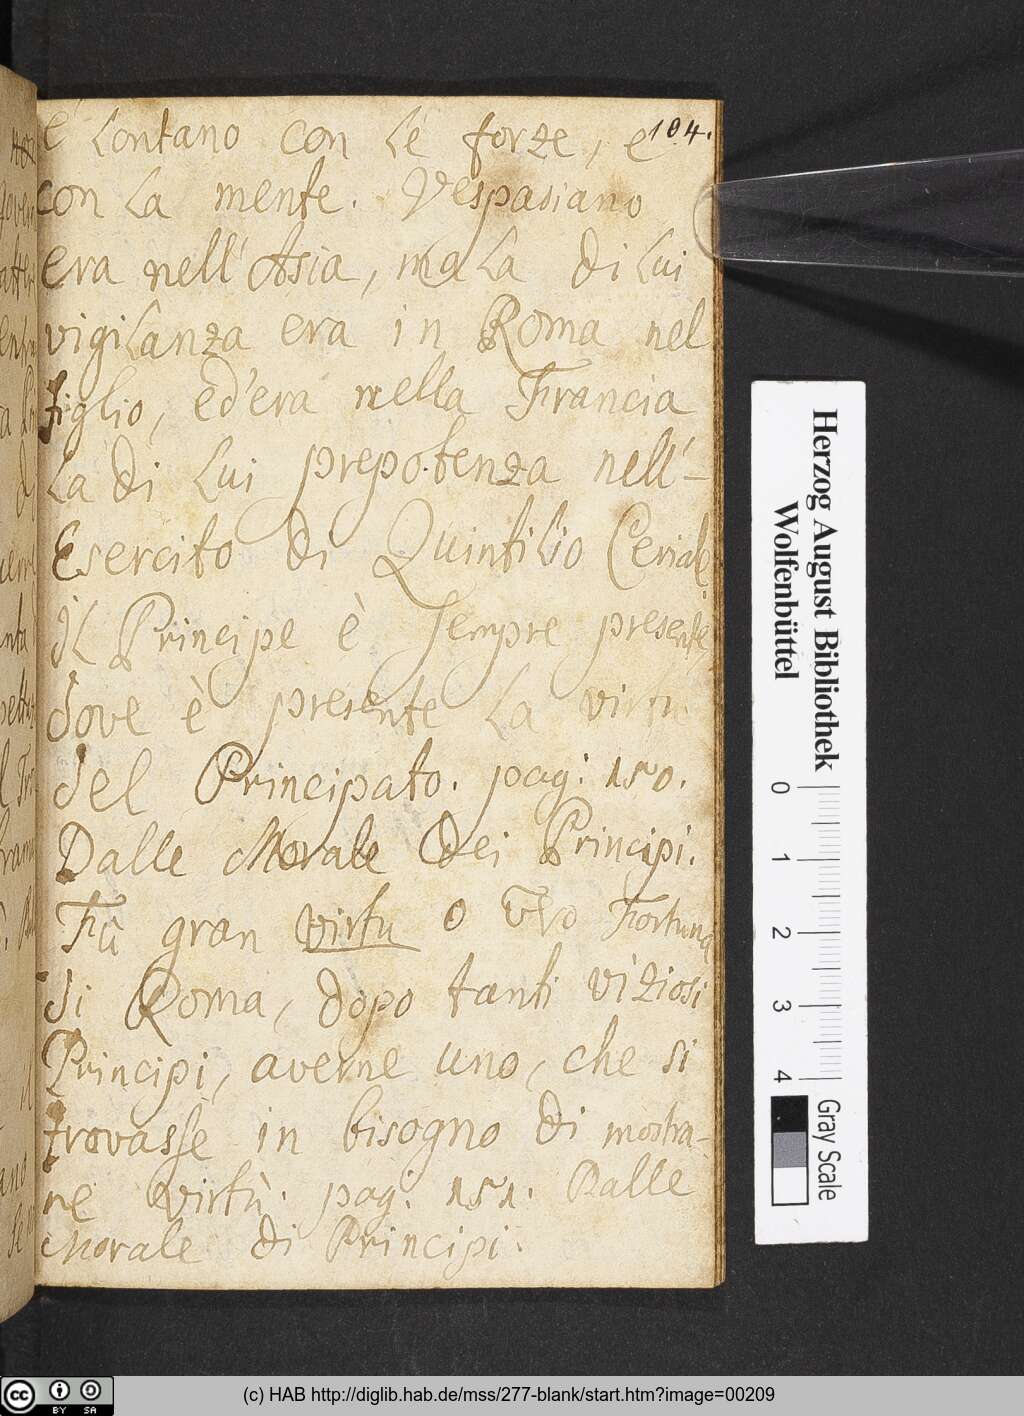 è Lontano con Le forze, e 104.
con La mente. Vespasiano
era nell'Asia, ma La di Lui
vigiLanza era in Roma nel
figlio, ed'era nella Francia
La di Lui prepotenza nell'-
Esercito di QuintiLio Ceriale
iL Principe è sempre presente,
dove è presente La virtu
del Principato. pag: 150.
Dalle Morale dei Principi.
Fû gran virtu o Fortuna
di Roma, dopo tanti viziosi
Principi, averne uno, che si
trovasse in bisogno di mostra-
re virtù. pag: 151. Dalle
Morale di Principi.
Herzog August Bibliothek
Wolfenbüttel
0 1 2 3 4
Gray Scale
cc BY SA
(c) HAB http://diglib.hab.de/mss/277-blank/start.htm?image=00209